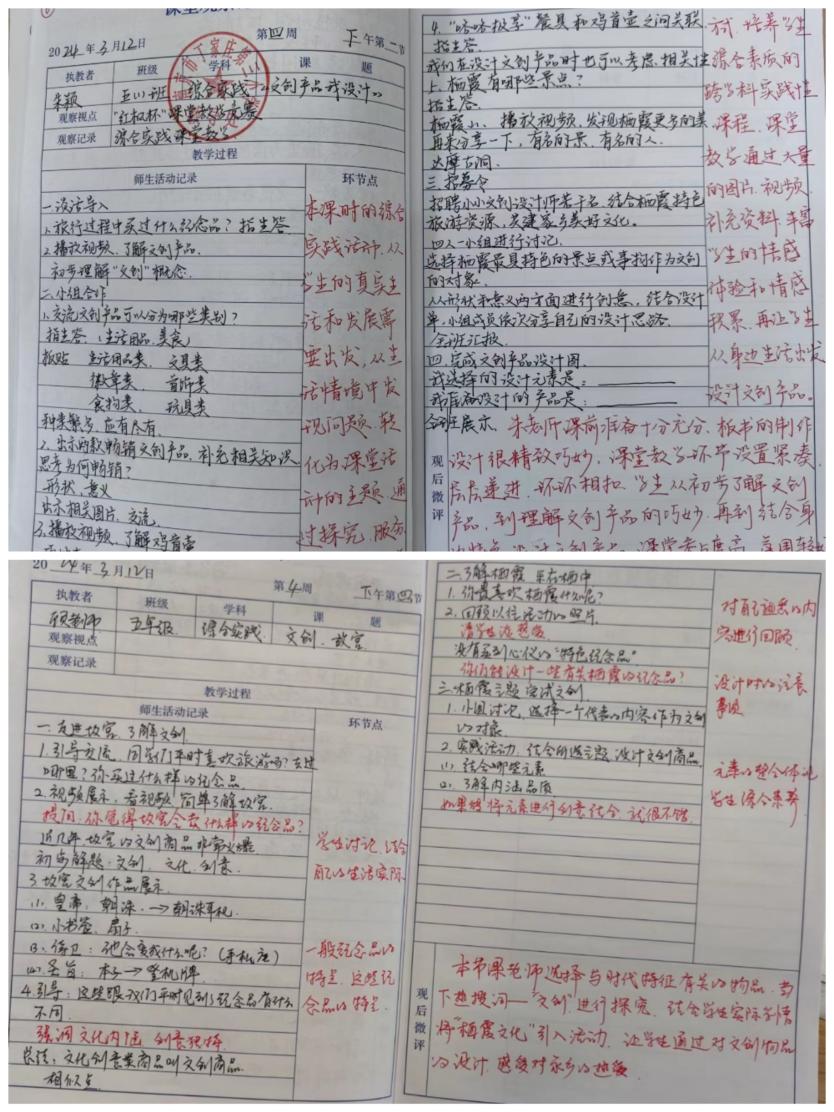 2024年3月12日 第四周 下午第二节
执教者 班级 学科 课 题
朱颖 五(1)班 综合实践 《文创产品我设计》
观察视点 "红杉杯"课堂教学竞赛
观察记录 综合实践课堂教学
教学过程
师生活动记录 环节点
一、谈话导入
1.旅行过程中买过什么纪念品?指生答
2.播放视频,了解文创产品.
初步理解"文创"概念.
二、小组合作
1.交流文创产品可以分为哪些类别?
指生答:(生活用品、美食)
板贴 生活用品类、文具类
徽章类、首饰类
食物类、玩具类
种类繁多,应有尽有.
2.出示四款畅销文创产品,补充相关知识
思考为何畅销?
形状、意义
出示相关图片,交流.
3.播放视频,了解鸡首壶
本课时的综合
实践活动,从
学生的真实生
活和发展需
要出发,从生
活情境中发
现问题,转
化为课堂活
动的主题,通
过探究、服务
4."嗒嗒极萃"餐具和鸡首壶之间关联
指生答.
我们在设计文创产品时也可以考虑相关性
上.栖霞有哪些景点?
指生答.
栖霞山、播放视频,发现栖霞更多的美
再来分享一下,有名的景、有名的人.
达摩古洞.
三、招募令
招聘小小文创设计师若干名,结合栖霞特色
旅游资源,共建家乡美好文化.
四人小组进行讨论.
选择栖霞最具特色的景点或事物作为文创
的对象.
从形状和意义两方面进行创意,结合设计
单,小组成员依次分享自己的设计思路.
全班汇报.
四、完成文创产品设计图.
我选择的设计元素是:
我准备设计的产品是:
全班展示.
式,培养学生
综合素质的
跨学科实践性
课程.课堂
教学通过大量
的图片、视频、
补充资料,丰富
学生的情感
体验和情感
积累,再让学生
从身边生活出发
设计文创产品.
观后微评
朱老师课前准备十分充分,板书的制作
设计很精致巧妙,课堂教学环节设置紧凑,
层层递进,环环相扣.学生从初步了解文创
产品,到理解文创产品的巧妙,再到结合身
2024年3月12日 第4周 下午第四节
执教者 班级 学科 课 题
顾老师 五年级 综合实践 文创·故宫
观察视点
观察记录
教学过程
师生活动记录 环节点
一、走进故宫,了解文创
1.引导交流,同学们平时喜欢旅游吗?去过
哪里?你买过什么样的纪念品.
2.视频展示,看视频,简单了解故宫.
提问:你觉得故宫会卖什么样的纪念品?
近几年,故宫的文创商品非常火爆.
初步解题:文创、文化、创意.
3.故宫文创作品展示
(1)皇帝:朝珠→朝珠耳机
(2)小书签、扇子.
(3)侍卫:他会变成什么呢?(手机座)
(4)圣旨:本子→登机牌.
4.引导:这些跟我们平时见到的纪念品有什么
不同.
强调文化内涵、创意独特.
总结:文化创意类商品叫文创商品.
相似点
学生讨论,结合
自己的生活实际
一般纪念品的
特点,这些纪
念品的特点.
二、了解栖霞 乐在栖中
1.你最喜欢栖霞什么呢?
2.回顾以往活动的照片.
请学生谈感受
没有买到心仪的"特色纪念品".
你们能设计一些有关栖霞的纪念品?
三、栖霞主题 尝试文创.
1.小组讨论,选择一个代表的内容作为文创
的对象.
2.实践活动,结合所选主题,设计文创商品.
(1)结合哪些元素
(2)了解内涵品质
如果能将元素进行创意结合,就很不错.
对自己熟悉的内
容进行回顾.
设计时的注意
事项
元素的整合体现
学生综合素养
观后微评
本节课老师选择与时代特征有关的物品,当
下热搜词——"文创"进行探究.结合学生实际学情
将"栖霞文化"引入活动,让学生通过对文创物品
的设计,感受对家乡的热爱.